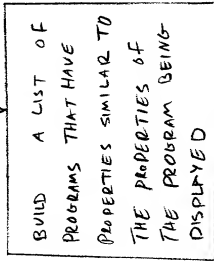 BUILD A LIST OF
PROGRAMS THAT HAVE
PROPERTIES SIMILAR TO
THE PROPERTIES OF
THE PROGRAM BEING
DISPLAYED